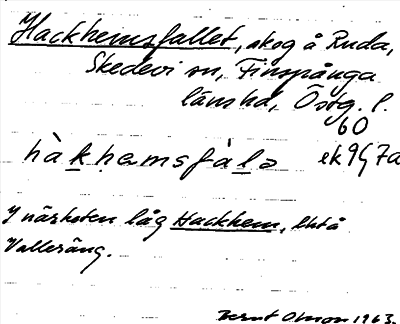 Hackhemsfallet, skog å Ruda,
Skedevi sn, Finspånga
länshd, Östg. l.
60
hàkhemsfàlə ek 9G7a
I närheten låg Hackhem, lht å
Valleräng.
Bernt Olsson 1963.